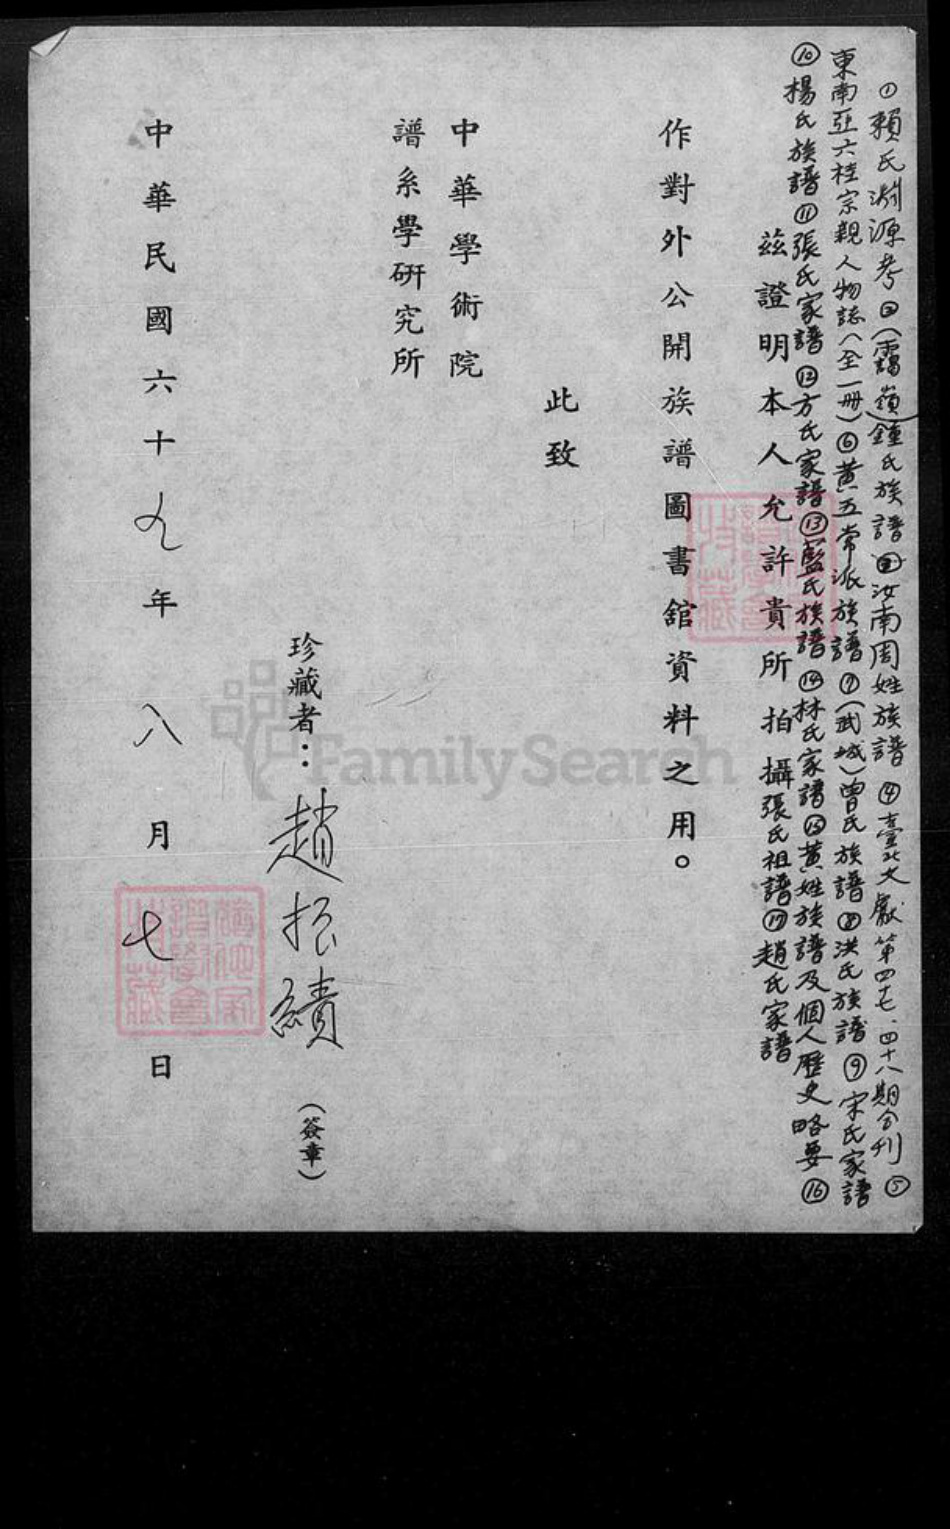 ①賴氏淵源考②(靄嶺)鍾氏族譜③汝南周姓族譜④臺北文獻第四七、四十八期合刊⑤
東南亞六桂宗親人物誌(全一冊)⑥黃五常派族譜⑦(武城)曾氏族譜⑧洪氏族譜⑨宋氏家譜
⑩楊氏族譜⑪張氏家譜⑫方氏家譜⑬藍氏族譜⑭林氏家譜⑮黃姓族譜及個人歷史略要⑯
茲證明本人允許貴所拍攝張氏祖譜⑰趙氏家譜
作對外公開族譜圖書舘資料之用。
此致
中華學術院
譜系學研究所
珍藏者：趙振績（簽章）
中華民國六十九年八月七日
FamilySearch